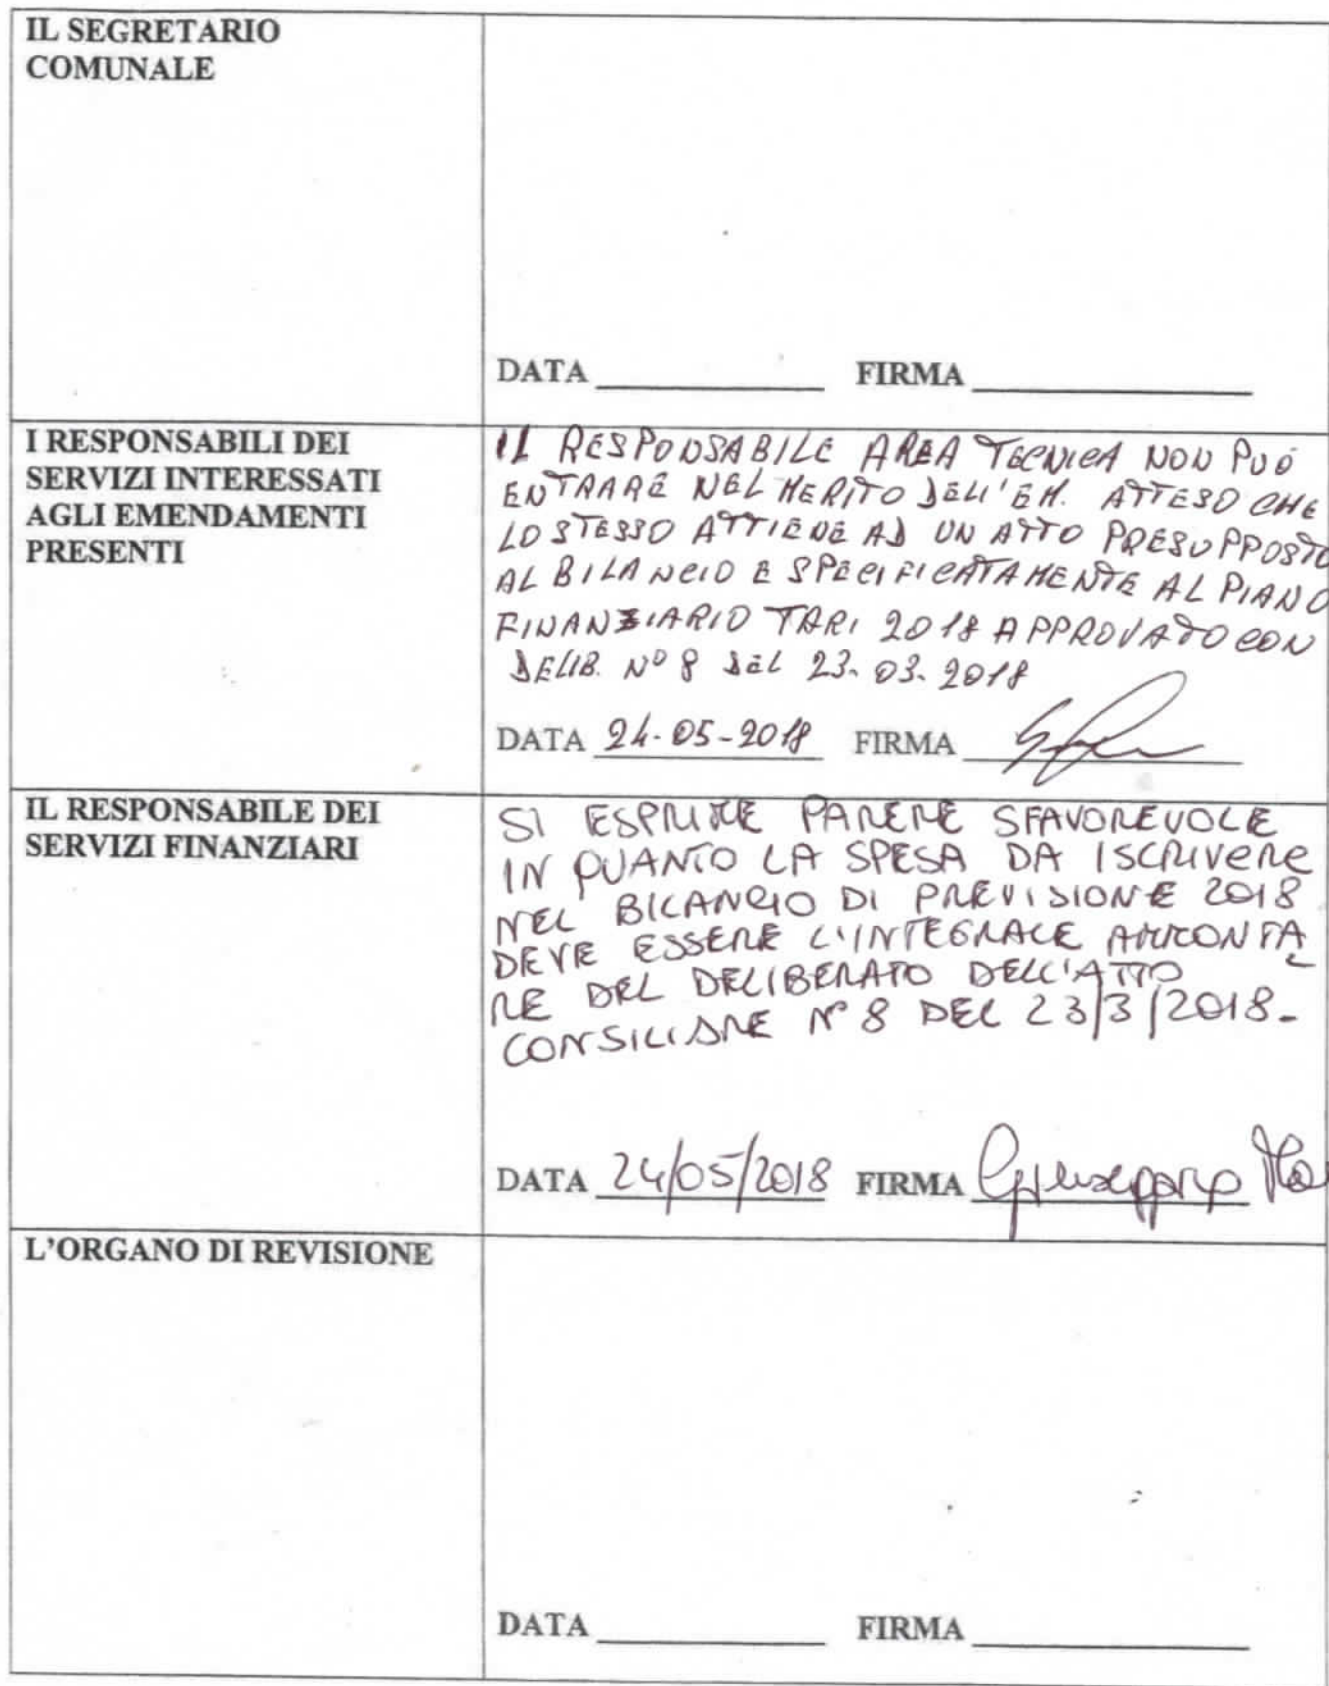 IL SEGRETARIO
COMUNALE
DATA FIRMA
I RESPONSABILI DEI
SERVIZI INTERESSATI
AGLI EMENDAMENTI
PRESENTI
IL RESPONSABILE AREA TECNICA NON PUÒ
ENTRARE NEL MERITO DELL'EM. ATTESO CHE
LO STESSO ATTIENE AD UN ATTO PRESUPPOSTO
AL BILANCIO E SPECIFICATAMENTE AL PIANO
FINANZIARIO TARI 2018 APPROVATO CON
DELIB. N° 8 DEL 23.03.2018
DATA 24-05-2018 FIRMA
IL RESPONSABILE DEI
SERVIZI FINANZIARI
SI ESPRIME PARERE SFAVOREVOLE
IN QUANTO LA SPESA DA ISCRIVERE
NEL BILANCIO DI PREVISIONE 2018
DEVE ESSERE L'INTEGRALE AMMONTA
RE DEL DELIBERATO DELL'ATTO
CONSILIARE N° 8 DEL 23/3/2018-
DATA 24/05/2018 FIRMA
L'ORGANO DI REVISIONE
DATA FIRMA